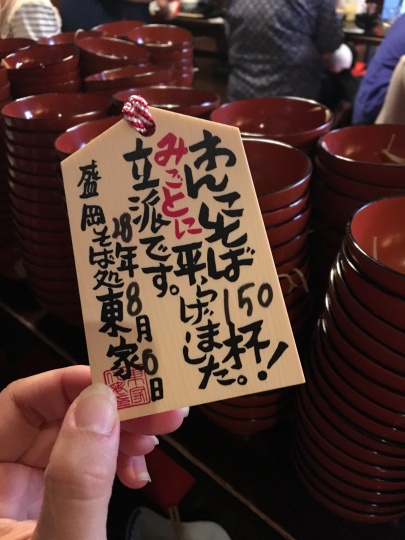 わんこそば150杯!
みごとに平らげました。
立派です。
28年8月6日
盛岡そば処東家